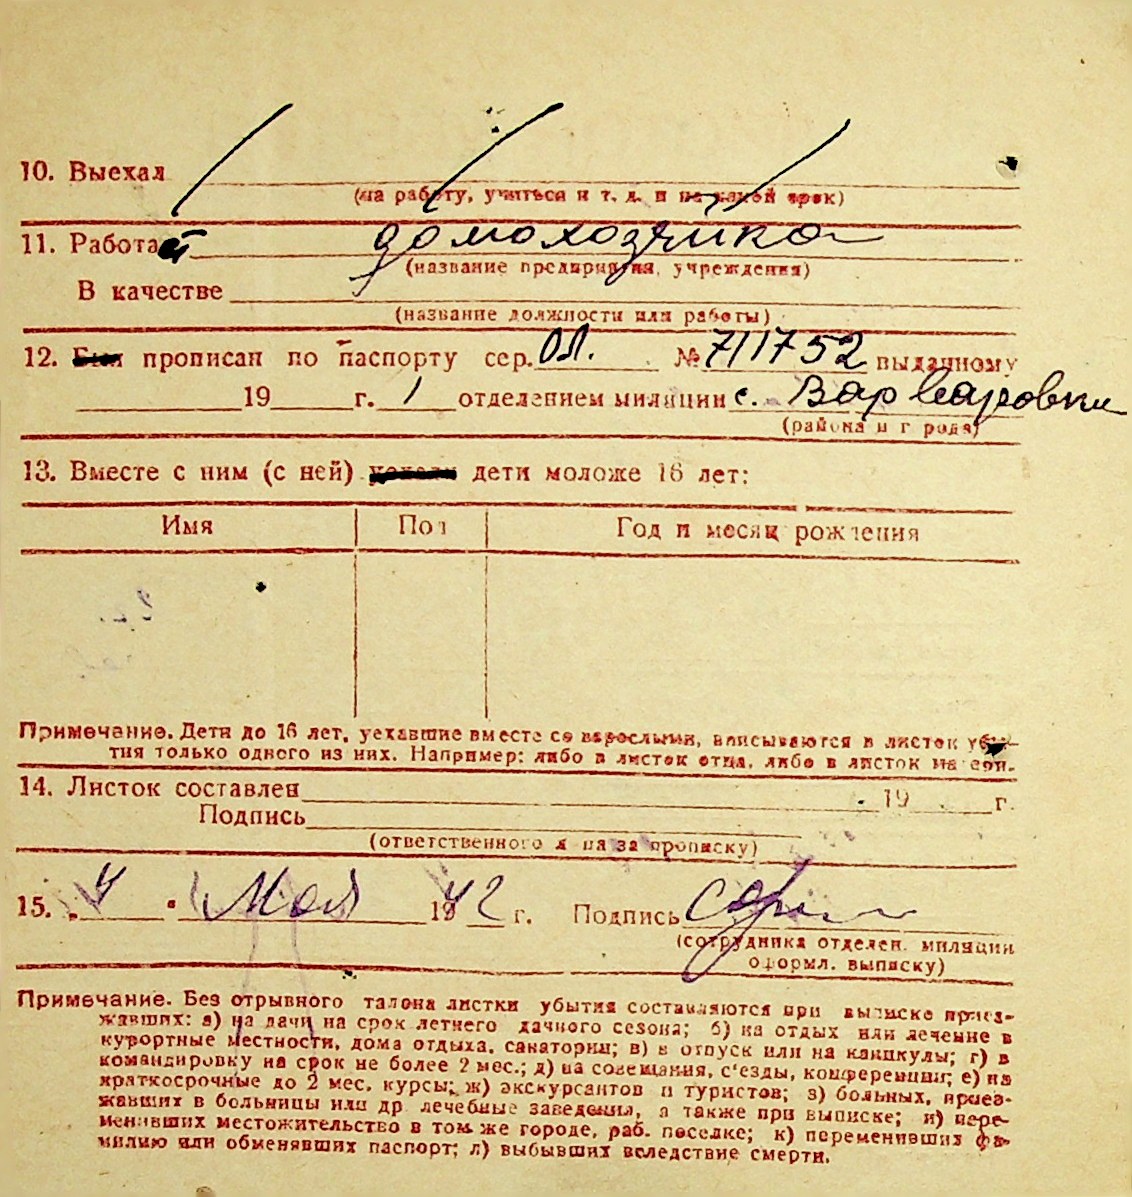 10. Выехал
(на работу, учиться и т. д. и на какой срок)
11. Работает домохозяйка
(название предприятия, учреждения)
В качестве
(название должности или работы)
12. Был прописан по паспорту сер. ОЛ. № 711752 выданному
19 г. 1 отделением милиции с. Варваровки
(района и города)
13. Вместе с ним (с ней) уехали дети моложе 16 лет:
Имя Пол Год и месяц рождения
Примечание. Дети до 16 лет, уехавшие вместе со взрослыми, вписываются в листок убы-
тия только одного из них. Например: либо в листок отца, либо в листок матери.
14. Листок составлен 19 г.
Подпись
(ответственного лица за прописку)
15. 4 Мая 1942 г. Подпись
(сотрудника отделен. милиции
оформл. выписку)
Примечание. Без отрывного талона листки убытия составляются при выписке приез-
жавших: а) на дачи на срок летнего дачного сезона; б) на отдых или лечение в
курортные местности, дома отдыха, санатории; в) в отпуск или на каникулы; г) в
командировку на срок не более 2 мес.; д) на совещания, с'езды, конференции; е) на
краткосрочные до 2 мес. курсы; ж) экскурсантов и туристов; з) больных, приез-
жавших в больницы или др. лечебные заведения, а также при выписке; и) пере-
менивших местожительство в том же городе, раб. поселке; к) переменивших фа-
милию или обменявших паспорт; л) выбывших вследствие смерти.